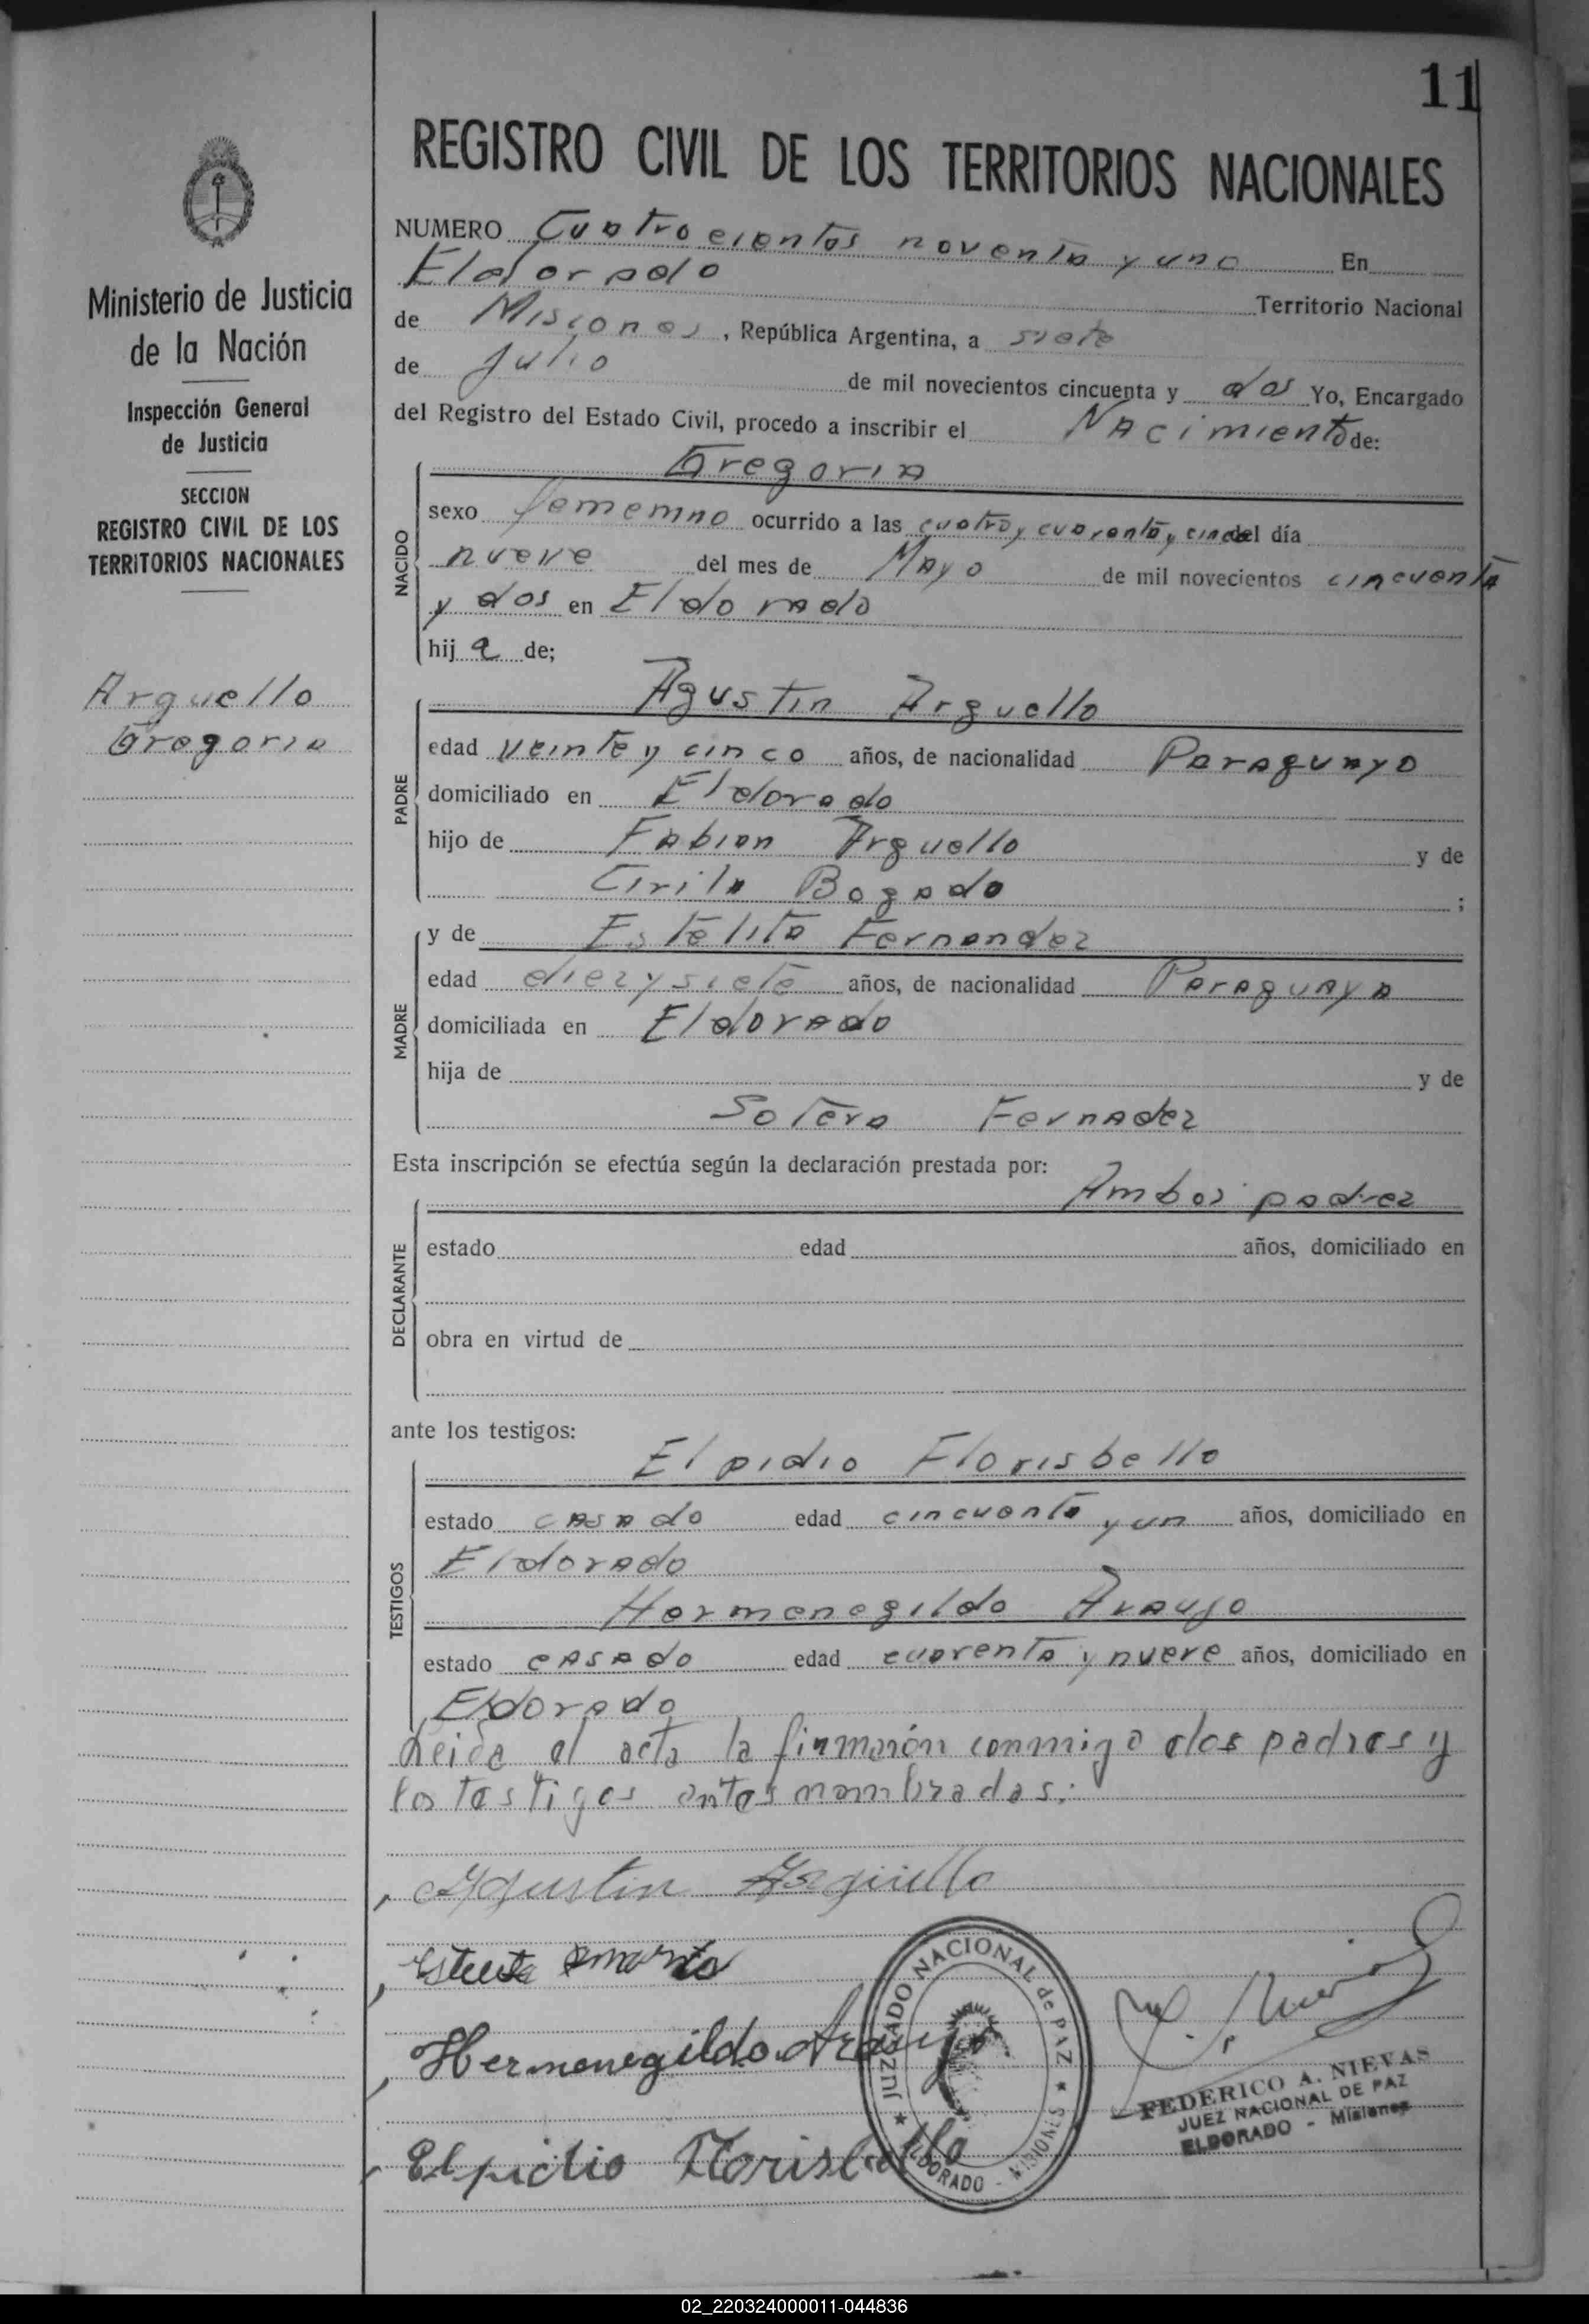 11
REGISTRO CIVIL DE LOS TERRITORIOS NACIONALES
Ministerio de Justicia
de la Nación
Inspección General
de Justicia
SECCION
REGISTRO CIVIL DE LOS
TERRITORIOS NACIONALES
Arguello
Gregoria
NUMERO Cuatrocientos noventa y uno En
Eldorado Territorio Nacional
de Misiones, República Argentina, a siete
de Julio de mil novecientos cincuenta y dos Yo, Encargado
del Registro del Estado Civil, procedo a inscribir el Nacimiento de:
NACIDO
Gregoria
sexo femenino ocurrido a las cuatro y cuarenta y cinco del día
nueve del mes de Mayo de mil novecientos cincuenta
y dos en Eldorado
hij a de;
PADRE
Agustin Arguello
edad veinte y cinco años, de nacionalidad Paraguayo
domiciliado en Eldorado
hijo de Fabian Arguello y de
Cirila Bogado ;
MADRE
y de Estelita Fernandez
edad diez y siete años, de nacionalidad Paraguaya
domiciliada en Eldorado
hija de y de
Sotera Fernadez
Esta inscripción se efectúa según la declaración prestada por:
DECLARANTE
Ambos padrez
estado edad años, domiciliado en
obra en virtud de
ante los testigos:
TESTIGOS
Elpidio Florisbello
estado casado edad cincuenta y un años, domiciliado en
Eldorado
Hermenegildo Araujo
estado casado edad cuarenta y nueve años, domiciliado en
Eldorado
Leida el acta la firmarón conmigo los padres y
los testigos antes nombrados.
Agustin Argüello
Hermenegildo Araujo
Elpidio Florisbello
JUZGADO NACIONAL de PAZ
ELDORADO - MISIONES
FEDERICO A. NIEVAS
JUEZ NACIONAL DE PAZ
ELDORADO - Misiones
02_220324000011-044836